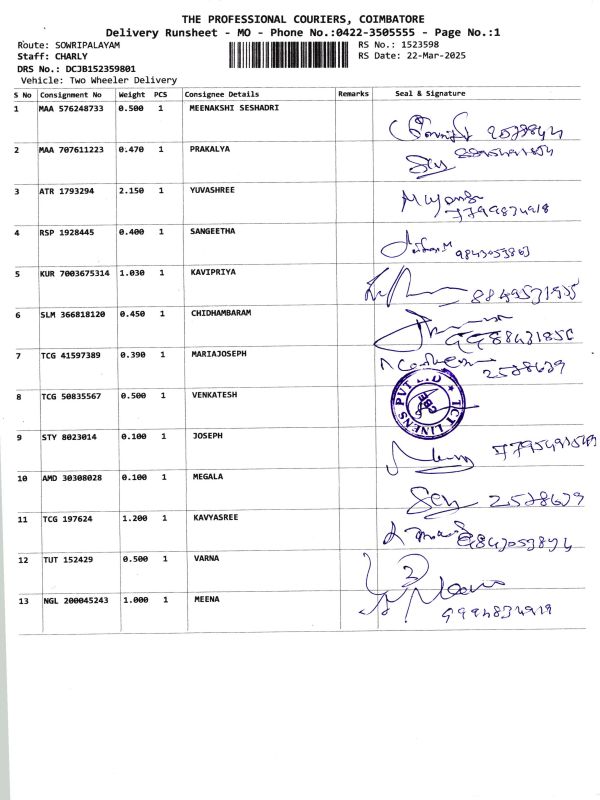 THE PROFESSIONAL COURIERS, COIMBATORE
Delivery Runsheet - MO - Phone No.:0422-3505555 - Page No.:1
Route: SOWRIPALAYAM RS No.: 1523598
Staff: CHARLY RS Date: 22-Mar-2025
DRS No.: DCJB152359801
Vehicle: Two Wheeler Delivery
S No Consignment No Weight PCS Consignee Details Remarks Seal & Signature
1 MAA 576248733 0.500 1 MEENAKSHI SESHADRI
2 MAA 707611223 0.470 1 PRAKALYA
3 ATR 1793294 2.150 1 YUVASHREE
4 RSP 1928445 0.400 1 SANGEETHA
5 KUR 7003675314 1.030 1 KAVIPRIYA
6 SLM 366818120 0.450 1 CHIDHAMBARAM
7 TCG 41597389 0.390 1 MARIAJOSEPH
2578679
8 TCG 50835567 0.500 1 VENKATESH TCT LINENS PVT LTD CBE
9 STY 8023014 0.100 1 JOSEPH
10 AMD 30308028 0.100 1 MEGALA 2578679
11 TCG 197624 1.200 1 KAVYASREE
12 TUT 152429 0.500 1 VARNA
13 NGL 200045243 1.000 1 MEENA